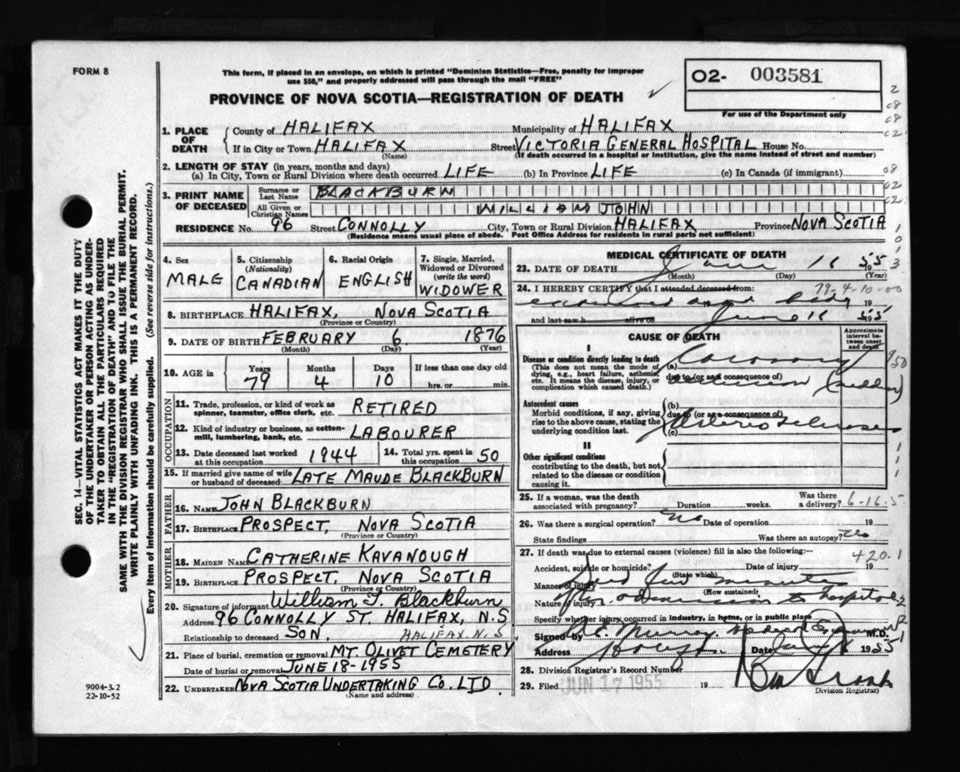 FORM 8
This form, if placed in an envelope, on which is printed "Dominion Statistics—Free, penalty for improper
use $50," and properly addressed will pass through the mail "FREE"
PROVINCE OF NOVA SCOTIA—REGISTRATION OF DEATH
O2- 003581
For use of the Department only
1. PLACE OF DEATH
County of HALIFAX Municipality of HALIFAX
If in City or Town HALIFAX Street VICTORIA GENERAL HOSPITAL House No.
(Name) (If death occurred in a hospital or institution, give the NAME instead of street and number)
2. LENGTH OF STAY (in years, months and days)
(a) In City, Town or Rural Division where death occurred LIFE (b) In Province LIFE (c) In Canada (if immigrant)
3. PRINT NAME OF DECEASED
Surname or Last Name BLACKBURN
All Given or Christian Names WILLIAM JOHN
RESIDENCE No. 96 Street CONNOLLY City, Town or Rural Division HALIFAX Province NOVA SCOTIA
(Residence means usual place of abode. Post Office Address for residents in rural parts not sufficient)
4. Sex MALE
5. Citizenship (Nationality) CANADIAN
6. Racial Origin ENGLISH
7. Single, Married, Widowed or Divorced (write the word) WIDOWER
8. BIRTHPLACE HALIFAX, NOVA SCOTIA
(Province or Country)
9. DATE OF BIRTH FEBRUARY 6 1876
(Month) (Day) (Year)
10. AGE in Years 79 Months 4 Days 10 If less than one day old hrs. or min.
OCCUPATION
11. Trade, profession, or kind of work as spinner, teamster, office clerk, etc. RETIRED
12. Kind of industry or business, as cotton-mill, lumbering, bank, etc. LABOURER
13. Date deceased last worked at this occupation 1944
14. Total yrs. spent in this occupation 50
15. If married give name of wife or husband of deceased LATE MAUDE BLACKBURN
FATHER
16. NAME JOHN BLACKBURN
17. BIRTHPLACE PROSPECT, NOVA SCOTIA
(Province or Country)
MOTHER
18. MAIDEN NAME CATHERINE KAVANOUGH
19. BIRTHPLACE PROSPECT, NOVA SCOTIA
(Province or Country)
20. Signature of informant William J. Blackburn
Address 96 CONNOLLY ST. HALIFAX, N.S.
Relationship to deceased SON, HALIFAX. N.S
21. Place of burial, cremation or removal MT. OLIVET CEMETERY
Date of burial or removal JUNE 18-1955
22. UNDERTAKER NOVA SCOTIA UNDERTAKING CO. LTD.
(Name and address)
MEDICAL CERTIFICATE OF DEATH
23. DATE OF DEATH June 16 1955
(Month) (Day) (Year)
24. I HEREBY CERTIFY that I attended deceased from: 79-4-10-00
examined dead body 19
and last saw h alive on June 16 1955
CAUSE OF DEATH
Approximate interval between onset and death
I
Disease or condition directly leading to death
(This does not mean the mode of dying, e.g., heart failure, asthenia, etc. It means the disease, injury, or complication which caused death.)
(a) Coronary
due to (or as a consequence of)
Antecedent causes
Morbid conditions, if any, giving rise to the above cause, stating the underlying condition last.
(b)
due to (or as a consequence of)
(c) Arteriosclerosis
II
Other significant conditions
contributing to the death, but not related to the disease or condition causing it.
25. If a woman, was the death associated with pregnancy? Duration weeks. Was there a delivery?
6-16-5
26. Was there a surgical operation? no Date of operation 19
State findings Was there an autopsy?
27. If death was due to external causes (violence) fill in also the following: 420.1
Accident, suicide or homicide? Date of injury 19
(State which)
Manner of injury Died few minutes
(How sustained)
Nature of injury after admission to hospital
Specify whether injury occurred in industry, in home, or in public place
Signed by Murray M.D.
Address Halifax Date 1955
28. Division Registrar's Record Number
29. Filed JUN 17 1955 19
Division Registrar
SEC. 14—VITAL STATISTICS ACT MAKES IT THE DUTY
OF THE UNDERTAKER OR PERSON ACTING AS UNDERTAKER
TO OBTAIN ALL THE PARTICULARS REQUIRED
IN THE "REGISTRATION OF DEATH" AND TO FILE THE
SAME WITH THE DIVISION REGISTRAR WHO SHALL ISSUE THE BURIAL PERMIT.
WRITE PLAINLY WITH UNFADING INK. THIS IS A PERMANENT RECORD.
Every item of information should be carefully supplied. (See reverse side for instructions.)
9004-3.2
22-10-52